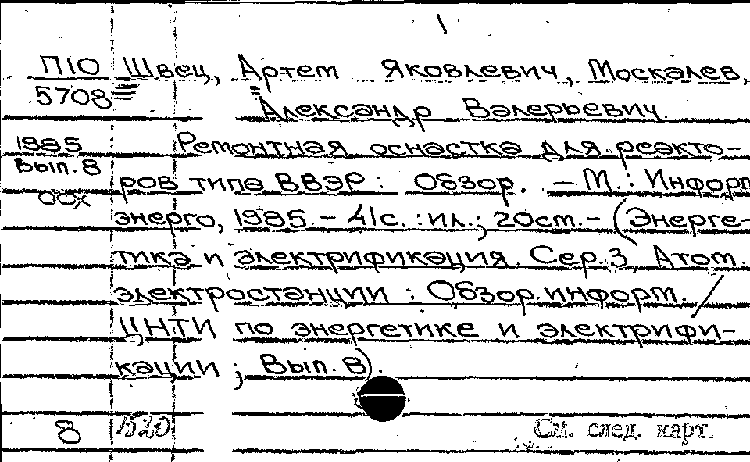 1
П10 Швец, Артем Яковлевич, Москалев,
5708 Александр Валерьевич
1985 Ремонтная оснастка для реакто-
Вып. 8 ров типа ВВЭР : Обзор. – М. : Информ
энерго, 1985. – 41с. : ил. ; 20см. – (Энерге-
тика и электрификация. Сер. 3, Атом.
электростанции : Обзор. информ. /
ЦНТИ по энергетике и электрифи-
кации ; Вып. 8).
8 1520 См. след. карт.